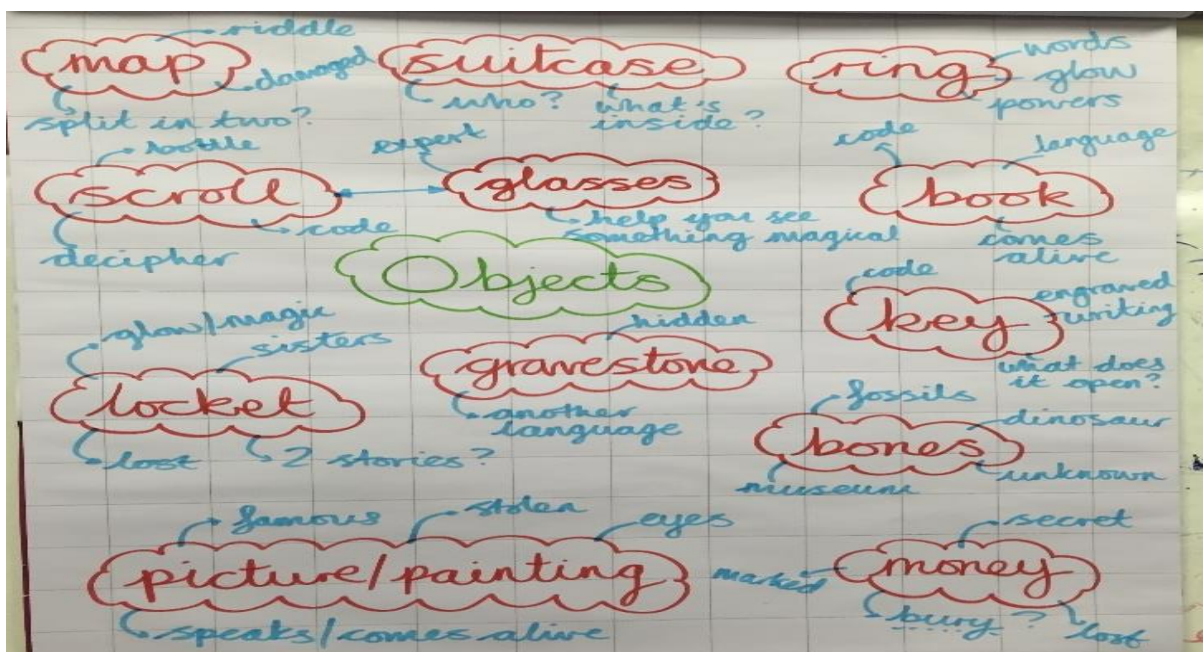 riddle
map
damaged
split in two?
suitcase
who?
what's
inside?
ring
words
glow
powers
bottle
scroll
code
decipher
expert
glasses
help you see
something magical
code
language
book
comes
alive
Objects
code
key
engraved
writing
what does
it open?
glow/magic
sisters
locket
lost
2 stories?
hidden
gravestone
another
language
fossils
dinosaur
bones
museum
unknown
famous
stolen
eyes
picture/painting
speaks/comes alive
secret
marked
money
bury?
lost